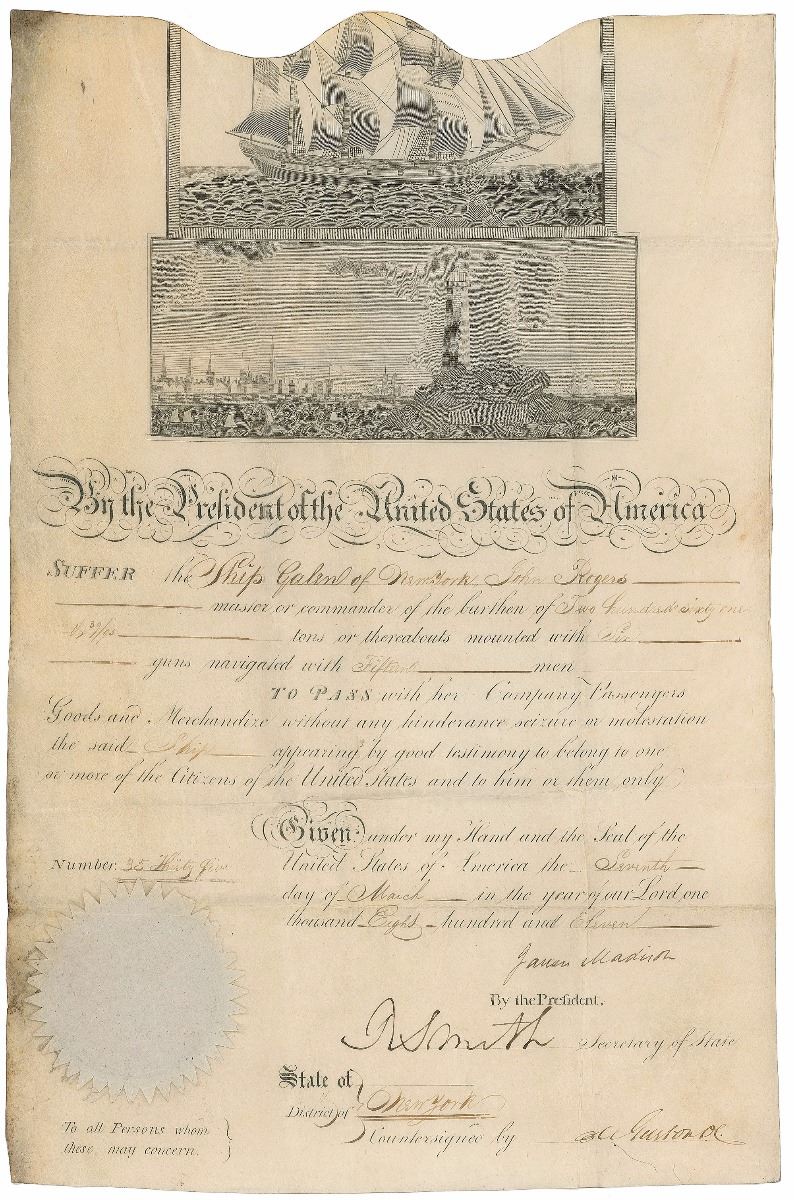 By the President of the United States of America
SUFFER the Ship Galen of New York John Rogers
master or commander of the burthen of Two hundred sixty one
30/95
tons or thereabouts mounted with
guns navigated with Fifteen men
TO PASS with her Company Passengers
Goods and Merchandize without any hinderance seizure or molestation
the said Ship appearing by good testimony to belong to one
or more of the Citizens of the United States and to him or them only
Given under my Hand and the Seal of the
United States of America the Seventh
Number 35 Thirty five
day of March in the year of our Lord one
thousand Eight hundred and Eleven
James Madison
By the President.
R Smith Secretary of State
State of
District of New York
Countersigned by
To all Persons whom
these may concern.